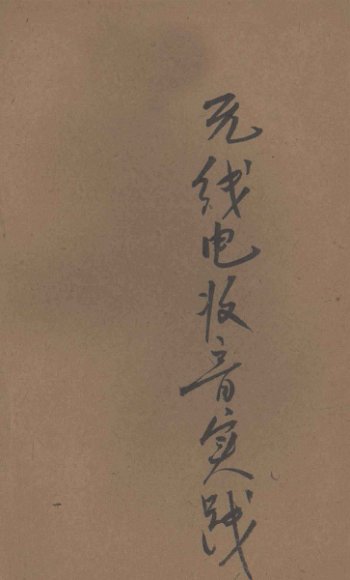 无线电收音实践